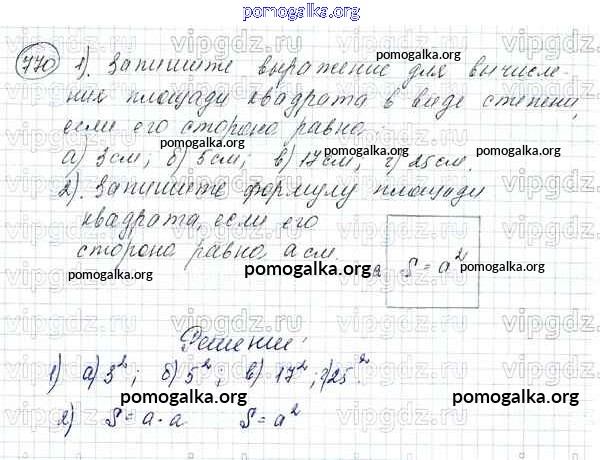 pomogalka.org
770 1). Запишите выражение для вычисле-
ния площади квадрата в виде степени,
если его сторона равна:
а) 3 см; б) 5 см; в) 17 см; г) 25 см.
2). Запишите формулу площади
квадрата, если его
сторона равна a см.
a S = a²
Решение:
1) а) 3²; б) 5²; в) 17²; г) 25².
2) S = a · a S = a²